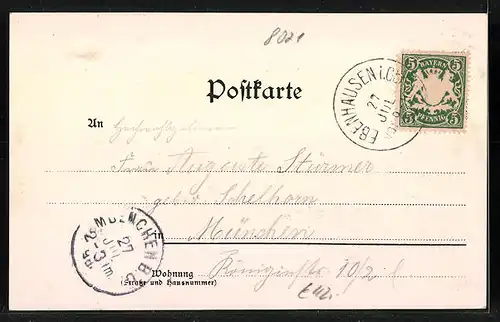 8021
Postkarte
BAYERN
5 5
PFENNIG
EBENHAUSEN i.
27
JUL
An
Frau Auguste Stürmer
gebor. Schelhorn
in
München
MUENCHEN B.
27
JUL
2-3
Wohnung
(Straße und Hausnummer)
Königinstr. 10/2 l